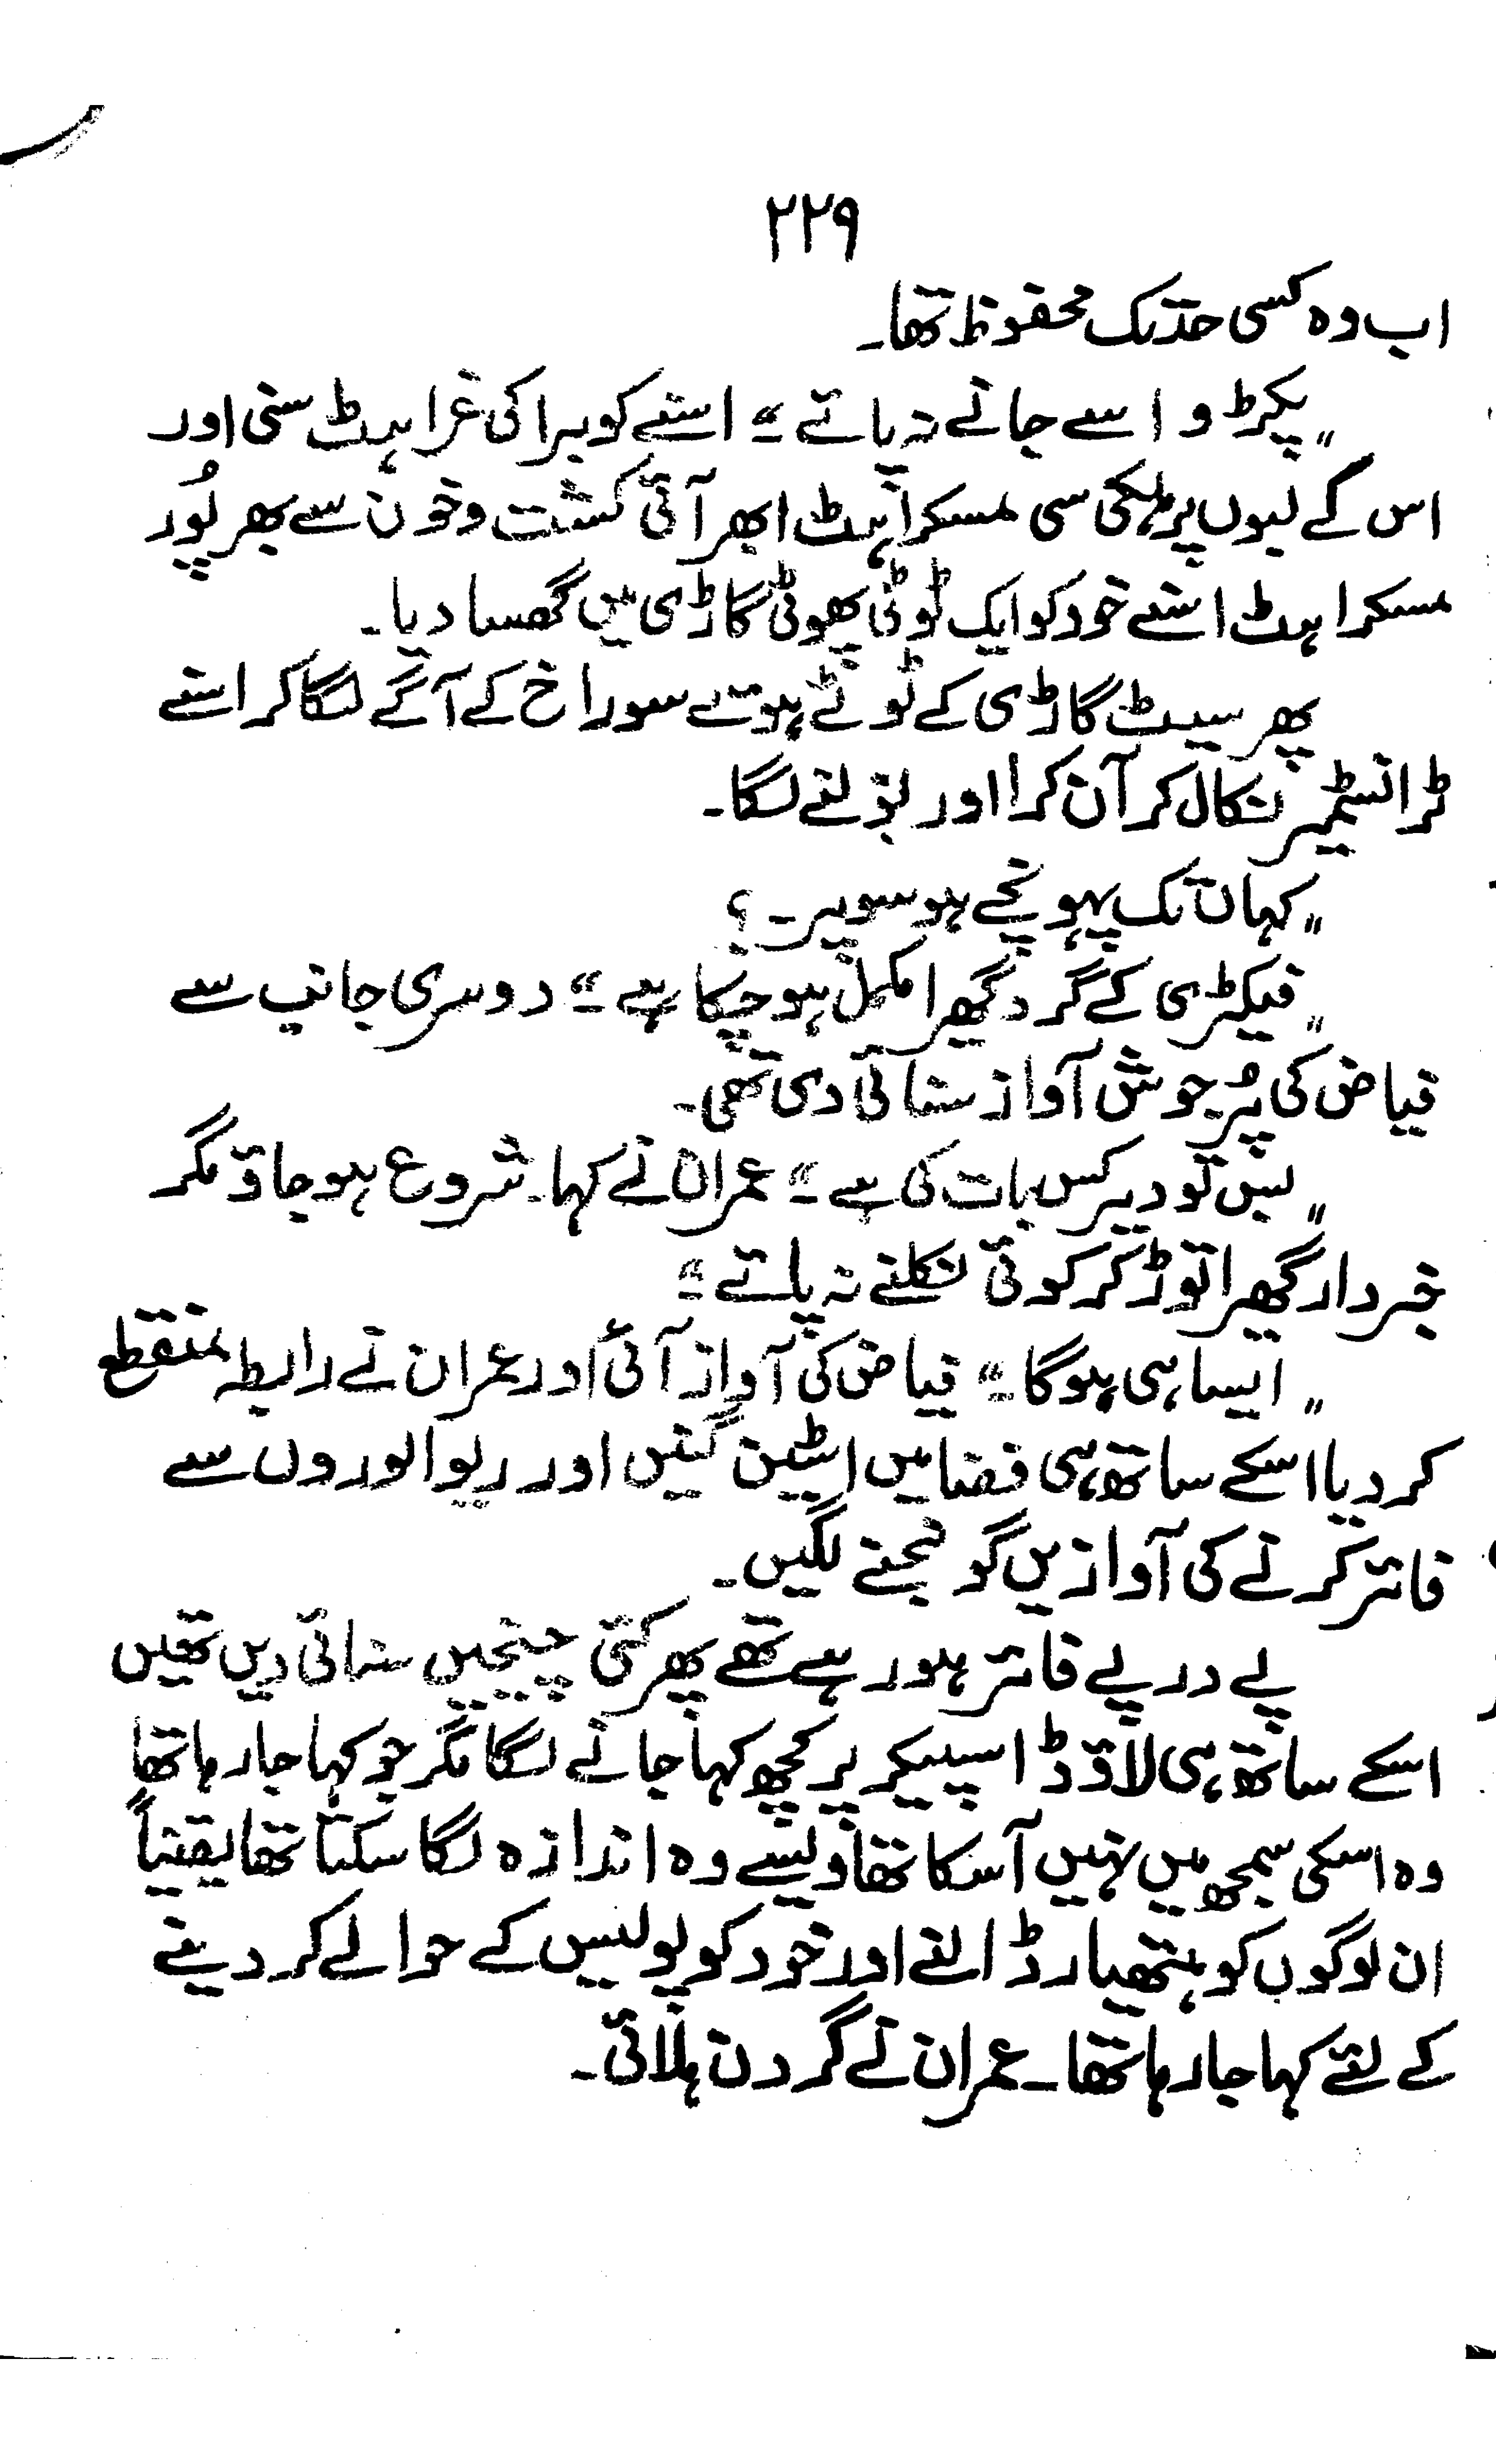 ۲۲۹
اب وہ کسی حد تک محفوظ تھا۔
"پکڑو اسے جانے نہ پائے"۔ اسنے کوبرا کی غراہٹ سنی اور
اس کے لبوں پر ہلکی سی مسکراہٹ ابھر آئی کشت و خون سے بھرپُور
مسکراہٹ اسنے خود کو ایک ٹوٹی پھوٹی گاڑی میں گھسا دیا۔
پھر سیٹ گاڑی کے ٹوٹے ہوئے سوراخ کے آگے لگا کر اسنے
ٹرانسمیٹر نکال کر آن کرا اور بولنے لگا۔
"کہاں تک پہونچے ہو سوپر۔؟
"فیکٹری کے گرد گھیرا مکمل ہو چکا ہے"۔ دوسری جانب سے
فیاض کی پُرجوش آواز سنائی دی تھی۔
"بس تو دیر کس بات کی ہے"۔ عمران نے کہا۔ شروع ہو جاؤ مگر
خبردار گھیرا توڑ کر کوئی نکلنے نہ پائے"۔
"ایسا ہی ہوگا"۔ فیاض کی آواز آئی اور عمران نے رابطہ منقطع
کر دیا اسکے ساتھ ہی فضا میں اسٹین گنیں اور ریوالوروں سے
فائر کرنے کی آوازیں گونجنے لگیں۔
پے در پے فائر ہو رہے تھے پھر کئی چیخیں سنائی دیں تھیں
اسکے ساتھ ہی لاؤڈ اسپیکر پر کچھ کہا جانے لگا مگر جو کہا جا رہا تھا
وہ اسکی سمجھ میں نہیں آ سکا تھا ویسے وہ اندازہ لگا سکتا تھا یقیناً
ان لوگوں کو ہتھیار ڈالنے اور خود کو پولیس کے حوالے کر دینے
کے لئے کہا جا رہا تھا۔ عمران نے گردن ہلائی۔